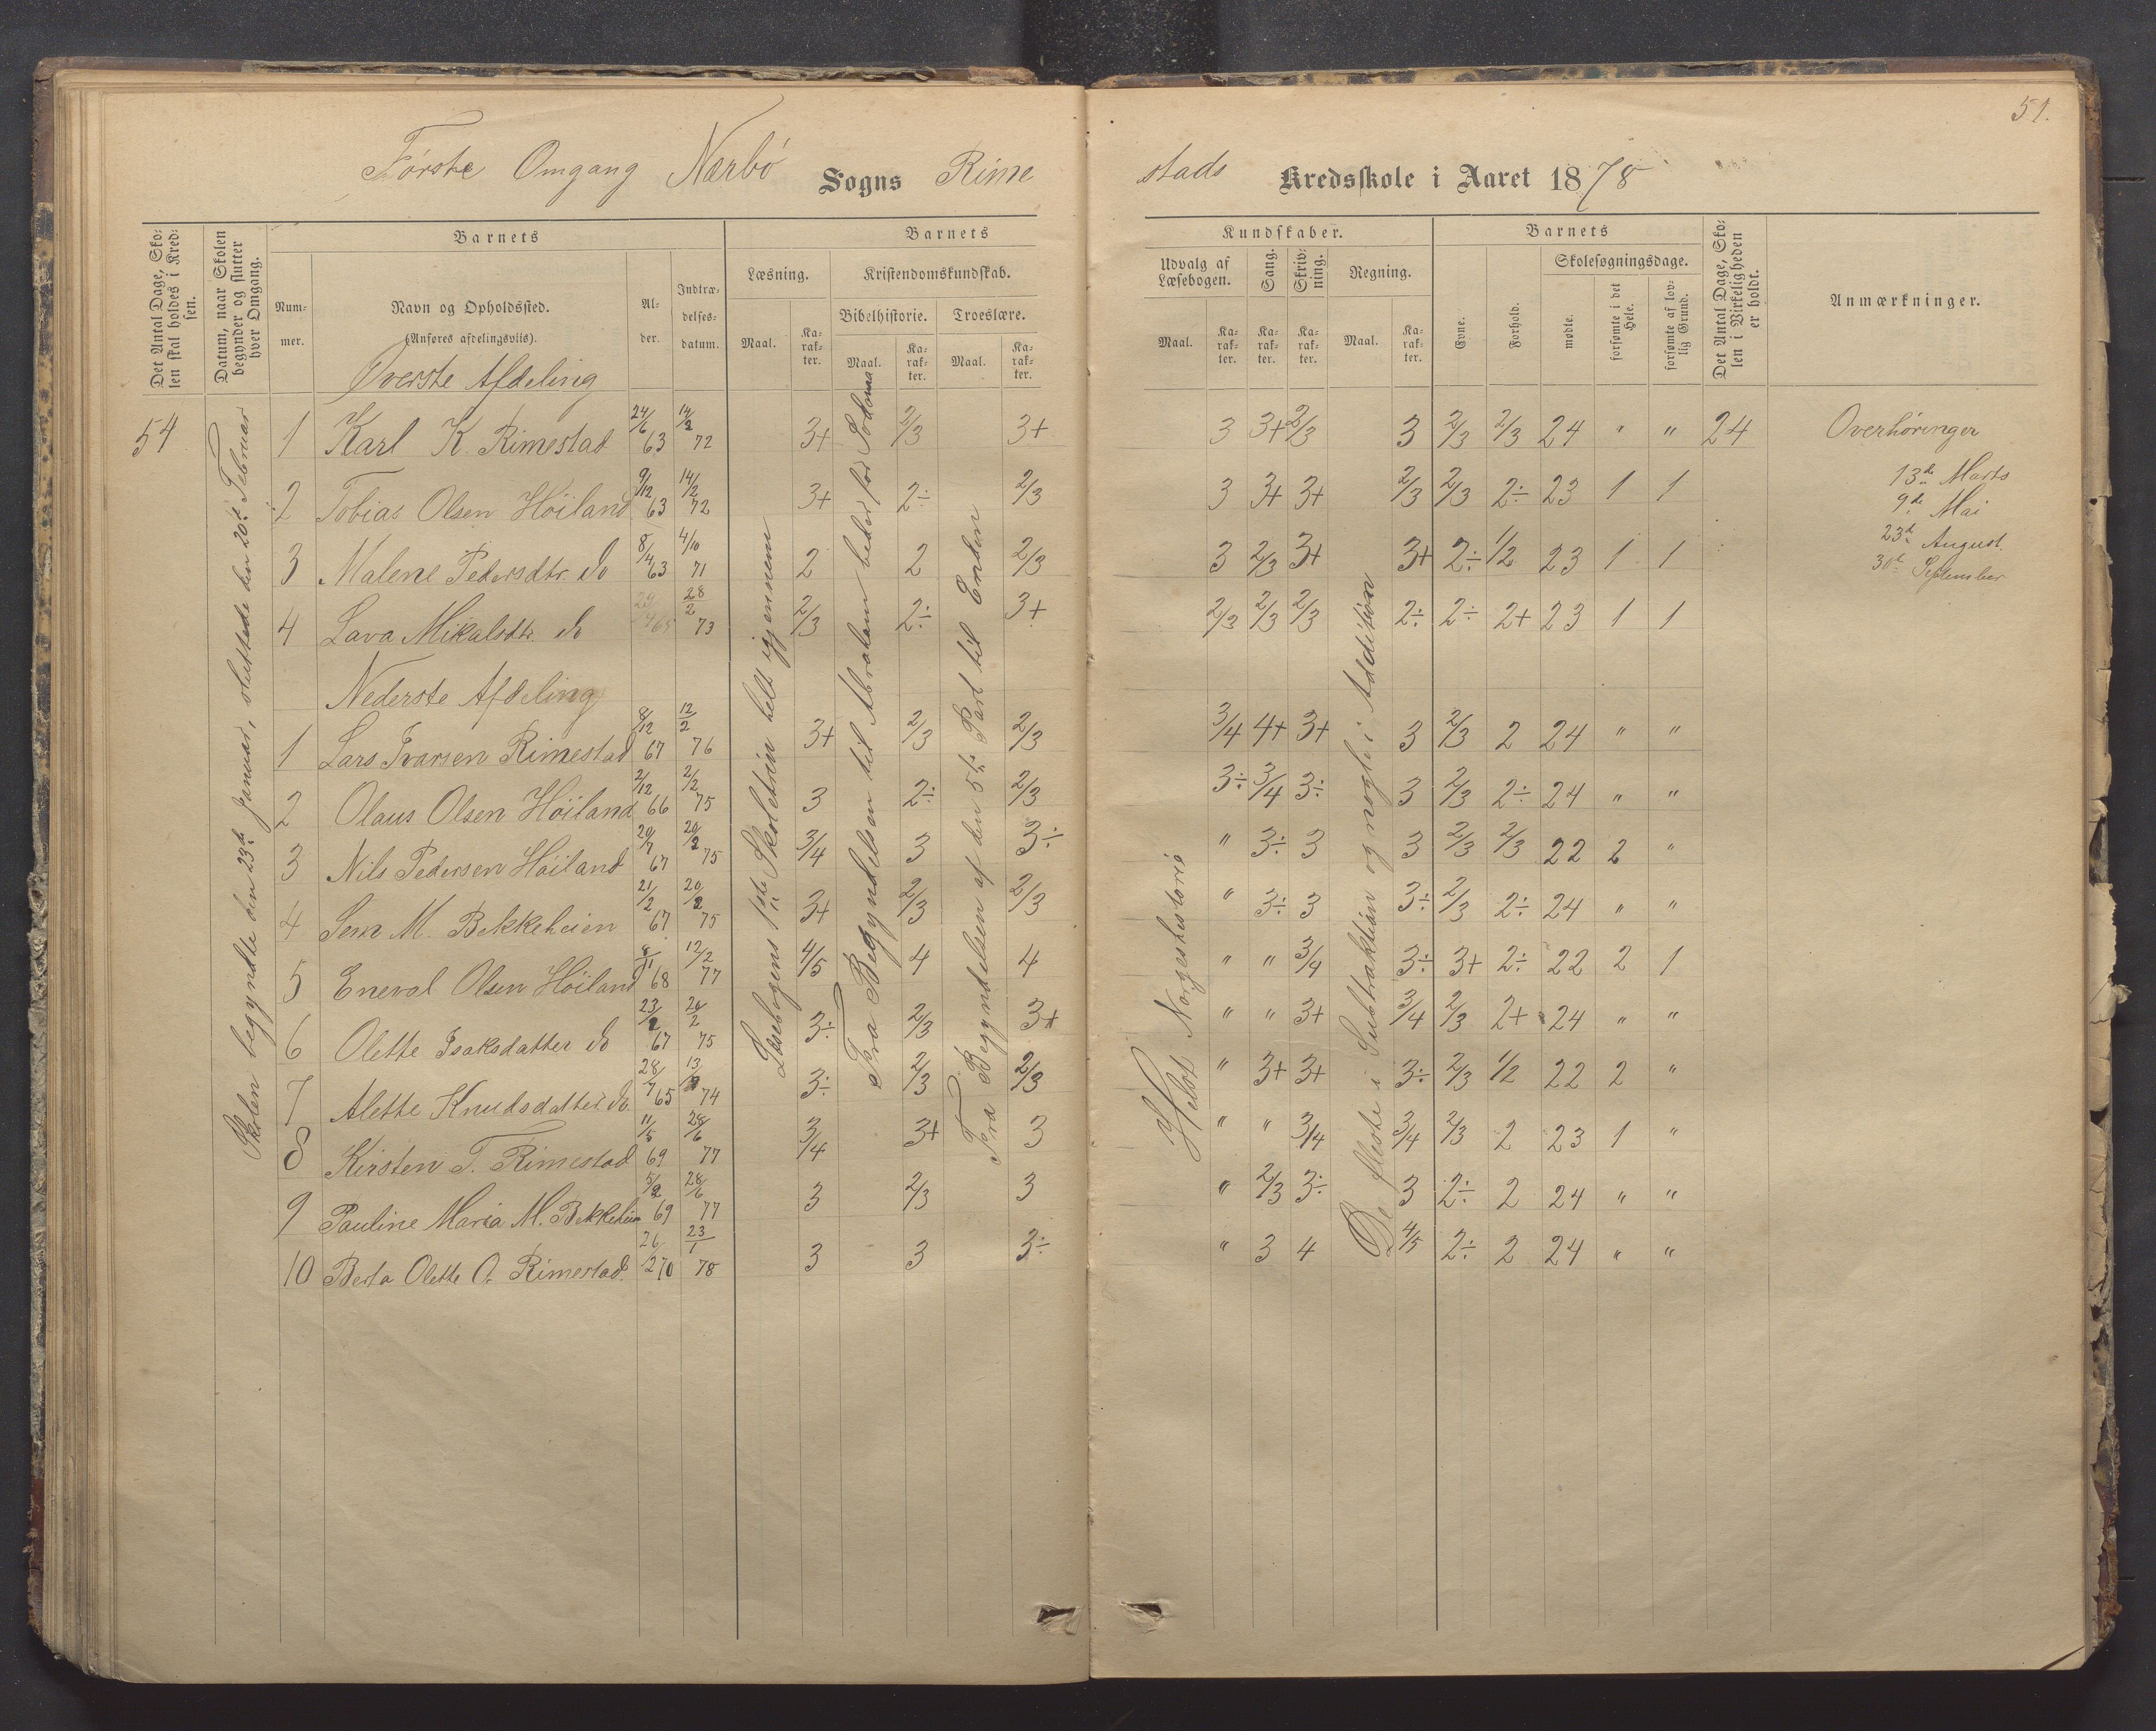 51.
Første Omgang Nærbö Sogns Rime stads Kredsskole i Aaret 1878
Det Antal Dage, Skolen skal holdes i Kredsen.
Datum, naar Skolen begynder og slutter hver Omgang.
Barnets
Nummer.
Navn og Opholdssted.
(Anføres afdelingsvis).
Alder.
Indtrædelsesdatum.
Barnets
Læsning.
Maal.
Karakter.
Kristendomskundskab.
Bibelhistorie.
Maal.
Karakter.
Troeslære.
Maal.
Karakter.
Kundskaber.
Udvalg af Læsebogen.
Maal.
Karakter.
Sang.
Karakter.
Skrivning.
Karakter.
Regning.
Maal.
Karakter.
Barnets
Evne.
Forhold.
Skolesøgningsdage.
mødte.
forsømte i det Hele.
forsømte af lovlig Grund.
Det Antal Dage, Skolen i Virkeligheden er holdt.
Anmærkninger.
Skolen begyndte den 23de Januar, sluttede den 20de Februar
Læsebogens 1ste Skoletrin helt igjennem
Fra Begyndelsen til Abraham beder for Sodoma
Fra Begyndelsen af den 5te Part til Enden
Helot Norgeshistorie
De fleste i Subtraktion og nogle i Addition
Øverste Afdeling
54 1 Karl K. Rimestad 24/6 63 14/2 72 3+ 2/3 3+ 3 3+ 2/3 3 2/3 2/3 24 " " 24 Overhöringer
2 Tobias Olsen Höiland 9/12 63 14/2 72 3+ 2÷ 2/3 3 3+ 3+ 2/3 2/3 2÷ 23 1 1 13de Marts
9de Mai
3 Malene Pedersdtr. do 8/4 63 4/10 71 2 2 2/3 3 2/3 3+ 3+ 2÷ 1/2 23 1 1 23de August
30te September
4 Lava Mikalsdtr. do 65 28/2 73 2/3 2÷ 3+ 2/3 2/3 2/3 2÷ 2÷ 2+ 23 1 1
Nederste Afdeling
1 Lars Ivarsen Rimestad 8/12 67 12/2 76 3+ 2/3 2/3 3/4 4+ 3+ 3 2/3 2 24 " "
2 Olaus Olsen Höiland 2/12 66 2/2 75 3 2÷ 2/3 3÷ 3/4 3÷ 3 2/3 2÷ 24 " "
3 Nils Pedersen Höiland 20/7 67 20/2 75 3/4 3 3÷ " 3÷ 3 3 2/3 2/3 22 2 "
4 Sem M. Bekkeheien 21/2 67 20/2 75 3+ 2/3 2/3 " 3÷ 3 3÷ 2/3 2÷ 24 " "
5 Eneval Olsen Höiland 8/11 68 12/2 77 4/5 4 4 " " 3/4 3÷ 3+ 2÷ 22 2 1
6 Olette Isaksdatter do 23/2 67 20/2 75 3÷ 2/3 3+ " " 3+ 3/4 2/3 2+ 24 " "
7 Alette Knudsdatter do. 28/7 65 13/2 74 3÷ 2/3 2/3 " 3+ 3+ 3÷ 2/3 1/2 22 2 "
8 Kirsten T. Rimestad 11/5 69 28/6 77 3/4 3+ 3 " " 3/4 3/4 2/3 2 23 1 "
9 Pauline Maria M. Bekkeheien 5/2 69 28/6 77 3 2/3 3 " 2/3 3÷ 3 2÷ 2 24 " "
10 Berta Olette O. Rimestad. 26/2 70 23/1 78 3 3 3÷ " 3 4 4/5 2÷ 2 24 " "